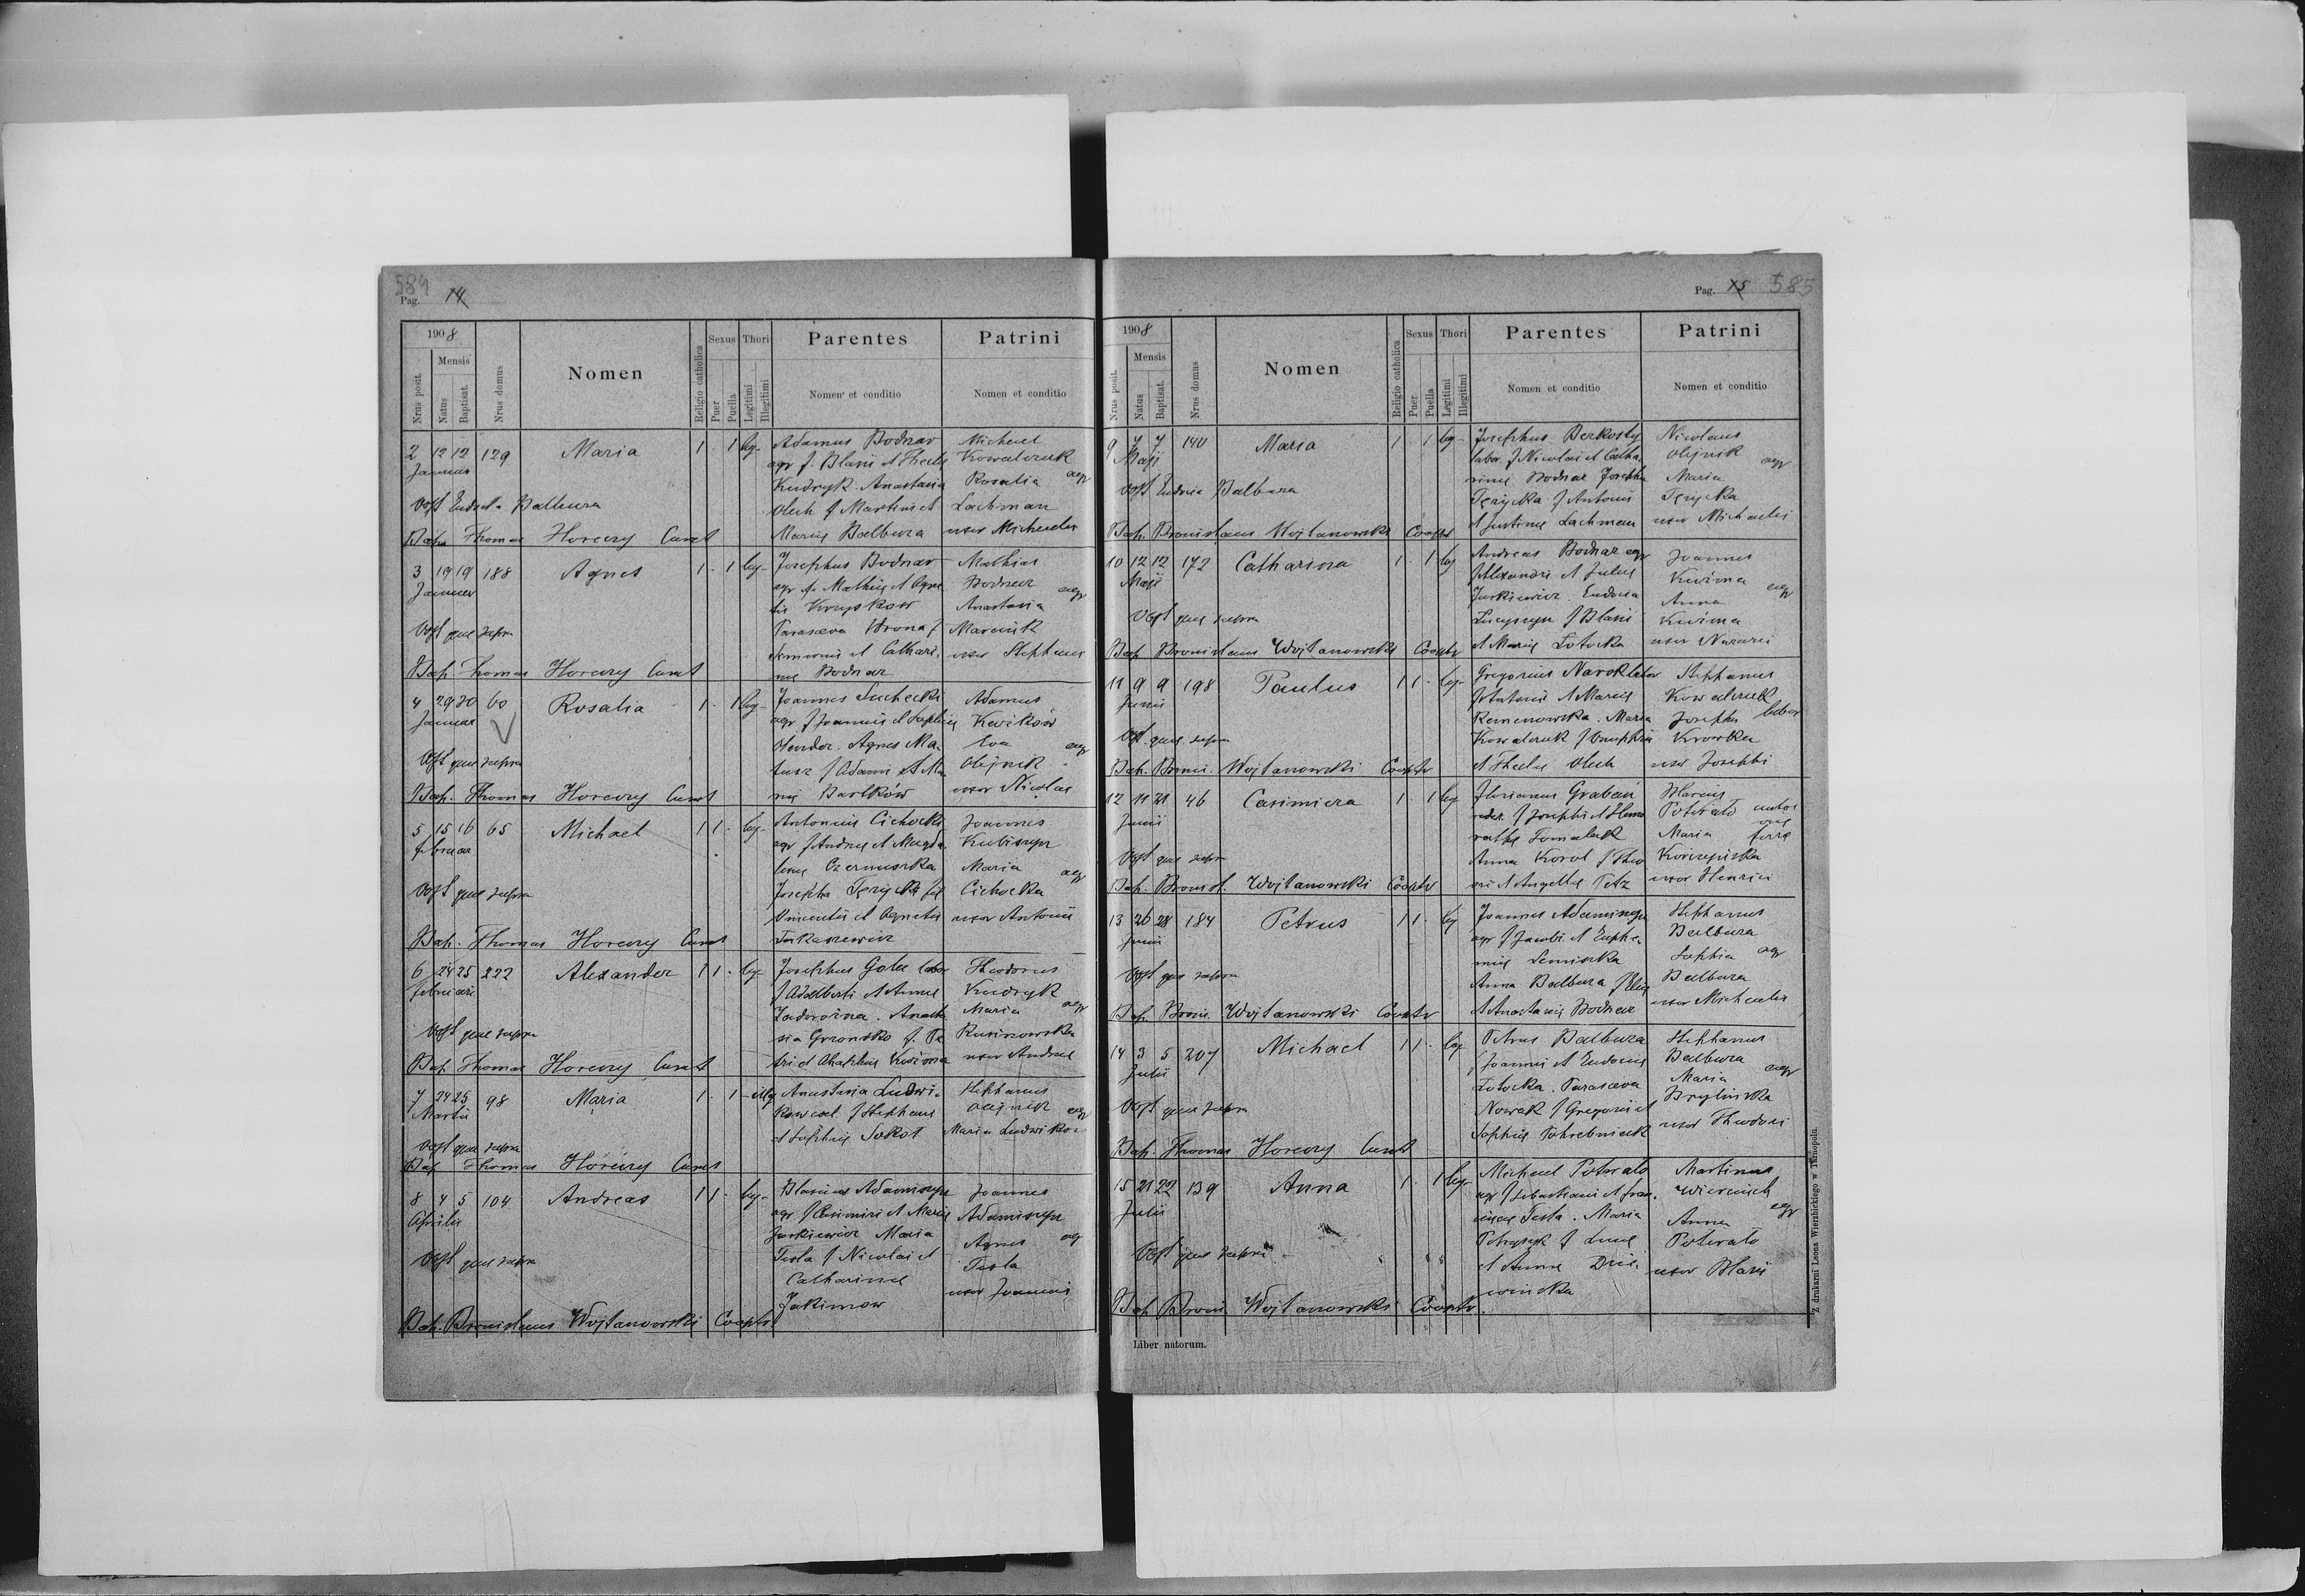 584
Pag. 14
1908
Nrus posit.
Mensis
Natus
Baptisat.
Nrus domus
Nomen
Religio catholica
Sexus
Puer
Puella
Thori
Legitimi
Illegitimi
Parentes
Nomen et conditio
Patrini
Nomen et conditio
2 12 12 129 Maria 1 . 1 leg.
Januar
Adamus Bodnar
agr f. Blasii et Theclae
Kudryk. Anastasia
Olech f Martini et
Mariae Balbuza
Michael
Kowalczuk
Rosalia agr
Lachman
uxor Michaelis
Obst Balbuza
Bap. Thomas Horeczy Curat
3 19 19 188 Agnes 1 . 1 leg.
Januar
Josephus Bodnar
agr f. Mathiae et Agne
tis
Parasceva Wrona f
Simeonis et Cathari.
nae Bodnar
Mathias
Bodnar agr
Anastasia
Marciuk
uxor Stephani
Obst quae supra
Bap. Thomas Horeczy Curat
4 29 30 60 Rosalia 1 . 1 leg.
Januar
Joannes Suchecki
agr f Joannis et Sophiae
Agnes Ma.
tusz f Adami et Ma
riae Bartków
Adamus
Kwików
Eva agr
Olejnik
uxor Nicolai
Obst quae supra
Bap. Thomas Horeczy Curat
5 15 16 65 Michael 1 1 . leg.
Februar
Antonius Cichocki
agr f Andreae et Magda.
lenae Czermuszka
Josepha Tezycka fil
Vincentii et Agnetis
Łukaszewicz
Joannes
Kubiszyn
Maria agr
Cichocka
uxor Antonii
Obst quae supra
Bap. Thomas Horeczy Curat
6 24 25 222 Alexander 1 1 . leg.
Februarii
Josephus Gole labor
f Adalberti et Annae
Zadorożna. Anasta
sia Gronsko f. Pe
tri et Agaphiae Kuźma
Theodorus
Kudryk
Maria agr
Rusinowska
uxor Andreae
Obst quae supra
Bap Thomas Horeczy Curat
7 24 25 98 Maria 1 . 1 illeg
Martii
Anastasia Ludwi.
kow f Stephani
et Sophiae Sokol
Stephanus
Olejnik agr
Maria Ludwikow
Obst quae supra
Bap Thomas Horeczy Curat
8 4 5 104 Andreas 1 1 . leg.
Aprilis
Blasius Adamiszyn
agr. f Casimiri et Mariae
Jurkiewicz Maria
Tesla f Nicolai et
Catharinae
Jakimow
Joannes
Adamiszyn
Agnes agr
Tesla
uxor Joannis
Obst quae supra
Bap. Bronislaus Wojtanowski Cooptr
Pag. 15 585
1908
Nrus posit.
Mensis
Natus
Baptisat.
Nrus domus
Nomen
Religio catholica.
Sexus
Puer
Puella
Thori
Legitimi
Illegitimi
Parentes
Nomen et conditio
Patrini
Nomen et conditio
9 7 7 140 Maria 1 . 1 leg
Maji
Josephus Berkosty
labor. f Nicolai et Catha.
rinae Bodnar Josepha
Tezycka f Antonii
et Justinae Lachman
Nicolaus
Olejnik agr
Maria
Tezycka
uxor Michaelis
Obst Eudocia Balbuza
Bap. Bronislaus Wojtanowski Cooptr
10 12 12 172 Catharina 1 . 1 leg
Maji
Andreas Bodnar agr
f Alexandri et Juliae
Jurkiewicz. Eudocia
Lucyszyn f Blasii
et Mariae Łotocka
Joannes
Kuźma agr
Anna
Kuźma
uxor Nazarii
Obst quae supra
Bap Bronislaus Wojtanowski Cooptr
11 9 9 198 Paulus 1 1 . leg.
Junii
Gregorius Narok labor
f Antonii et Mariae
Remenowska. Maria
Kowalczuk f Onuphrii
et Theclae Olech
Stephanus
Kowalczuk
Josepha labor
Krowka
uxor Josephi
Obst. quae supra
Bap. Broni. Wojtanowski Cooptr
12 11 21 46 Casimiera 1 . 1 leg
Junii
Florianus Graban
f Josephi et Hono
rathae Tomalak
Anna Korol f Theo
ori et Angelae Petz
Marcus
Potorało
Maria
uxor Henrici
Obst quae supra
Bap. Bronisl. Wojtanowski Cooptr
13 26 28 184 Petrus 1 1 . leg
Junii
Joannes Adamiszyn
agr f Jacobi et Euphe.
miae Semiszka
Anna Balbuza f Eliae
et Anastasiae Bodnar
Stephanus
Balbuza
Sophia agr
Balbuza
uxor Michaelis
Obst quae supra
Bap. Broni. Wojtanowski Cooptr
14 3 5 207 Michael 1 1 . leg
Julii
Petrus Balbuza
f Joannis et Eudociae
Łotocka. Parasceva
Nowak f Gregorii et
Sophiae Pohrebniak
Stephanus
Balbuza
Maria agr
Brylinska
uxor Theodori
Obst quae supra
Bap. Thomas Horeczy Curat
15 21 22 139 Anna 1 . 1 leg.
Julii
Michael Potorało
agr f Sebastiani et Fran.
ciscae Tesla. Maria
Petryszyk f Lucae
et Annae Dzie.
winska
Martinus
Wiercinich
Anna agr
Potorało
uxor Blasii
Obst quae supra
Bap. Broni Wojtanowski Cooptr.
Liber natorum.
Z drukarni Leona Wierzbickiego w Tarnopolu.